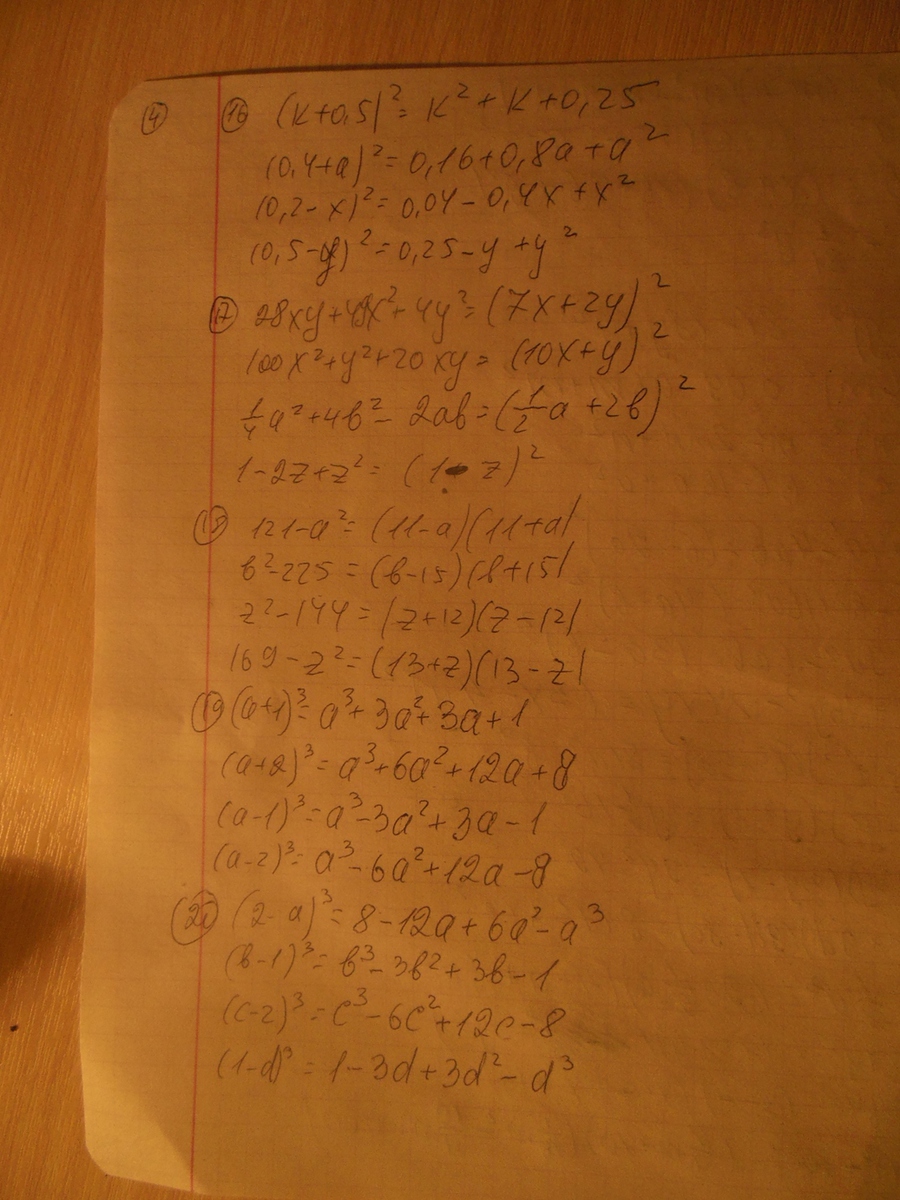 ④ ⑯ (k+0,5)² = k² + k + 0,25
(0,4+a)² = 0,16 + 0,8a + a²
(0,2-x)² = 0,04 - 0,4x + x²
(0,5-y)² = 0,25 - y + y²
⑰ 28xy + 49x² + 4y² = (7x+2y)²
100x² + y² + 20xy = (10x+y)²
1/4 a² + 4b² - 2ab = (1/2 a + 2b)²
1 - 2z + z² = (1 - z)²
⑱ 121 - a² = (11-a)(11+a)
b² - 225 = (b-15)(b+15)
z² - 144 = (z+12)(z-12)
169 - z² = (13+z)(13-z)
⑲ (a+1)³ = a³ + 3a² + 3a + 1
(a+2)³ = a³ + 6a² + 12a + 8
(a-1)³ = a³ - 3a² + 3a - 1
(a-2)³ = a³ - 6a² + 12a - 8
(2-a)³ = 8 - 12a + 6a² - a³
(b-1)³ = b³ - 3b² + 3b - 1
(c-2)³ = c³ - 6c² + 12c - 8
(1-d)³ = 1 - 3d + 3d² - d³